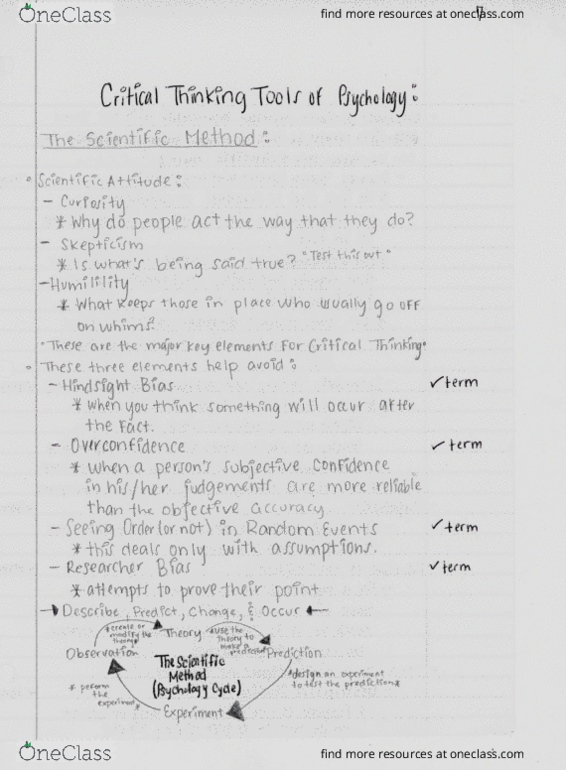 OneClass
find more resources at oneclass.com
17
Critical Thinking Tools of Psychology:
The Scientific Method:
• Scientific Attitude:
- Curiosity
* Why do people act the way that they do?
- Skepticism
* Is what's being said true? "Test this out"
- Humilility
* What keeps those in place who usually go off
on whims?
• These are the major key elements for Critical Thinking•
• These three elements help avoid:
- Hindsight Bias ✓term
* when you think something will occur after
the fact.
- Overconfidence ✓term
* when a person's subjective confidence
in his/her judgements are more reliable
than the objective accuracy
- Seeing Order (or not) in Random Events ✓term
* this deals only with assumptions.
- Researcher Bias ✓term
* attempts to prove their point
→ Describe, Predict, Change, & Occur ←
*create or
modify the
theory*
Theory
*use the
theory to
make a
prediction*
Observation
Prediction
The Scientific
Method
(Psychology Cycle)
*design an experiment
to test the prediction*
* perform
the
experiment*
Experiment
OneClass
find more resources at oneclass.com